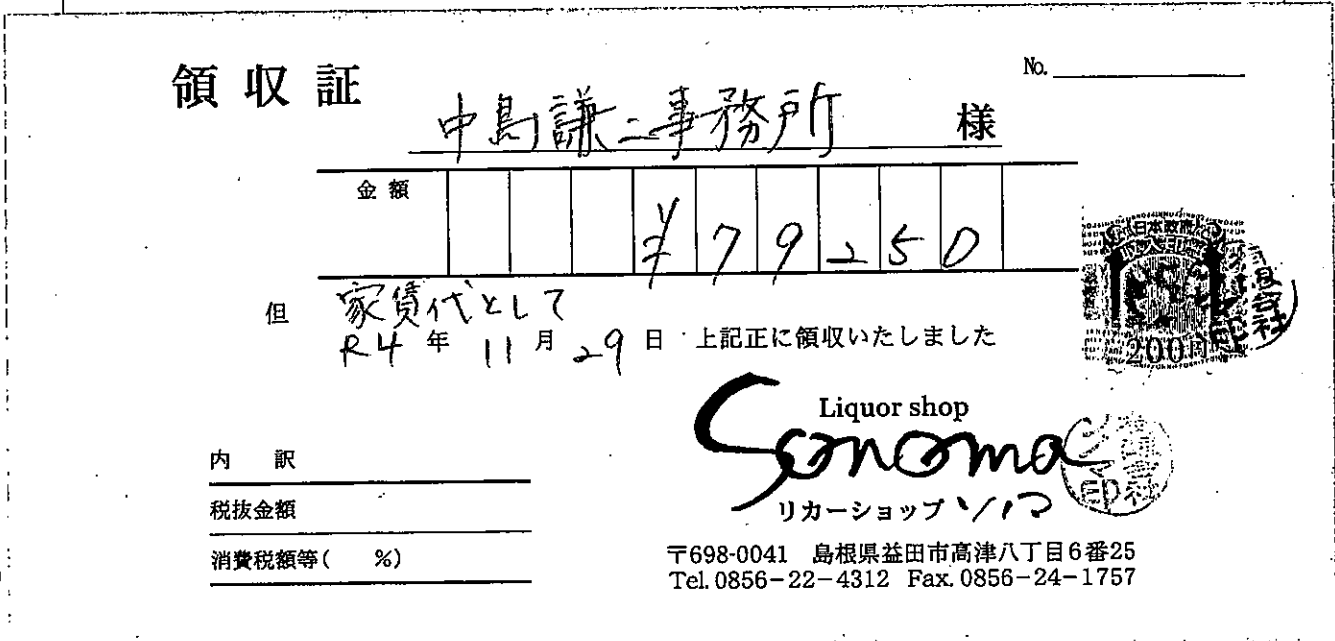 領収証
No.
中島謙二事務所 様
金額 ¥79250
但 家賃代として
R4年11月29日 上記正に領収いたしました
日本政府
200円
Liquor shop
Sonoma
リカーショップ ソノマ
内訳
税抜金額
消費税額等( %)
〒698-0041 島根県益田市高津八丁目6番25
Tel.0856-22-4312 Fax.0856-24-1757